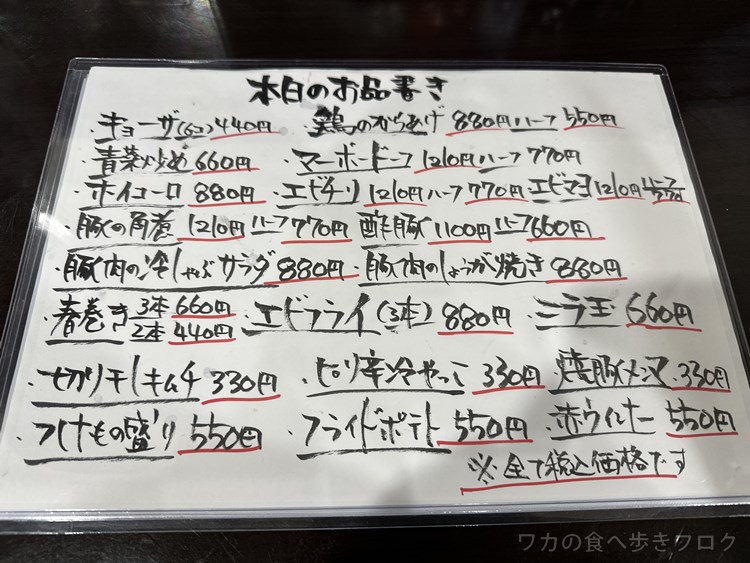 本日のお品書き
・ギョーザ(6コ)440円 ・鶏のからあげ 880円ハーフ550円
・青菜炒め 660円 ・マーボードーフ 1210円ハーフ770円
・ホイコーロ 880円 ・エビチリ 1210円ハーフ770円 エビマヨ 1210円ハーフ770円
・豚の角煮 1210円ハーフ770円 酢豚 1100円ハーフ660円
・豚肉の冷しゃぶサラダ 880円 ・豚肉のしょうが焼き 880円
・春巻き 3本660円 2本440円 エビフライ(3本)880円 ・ニラ玉 660円
・セロリモヤシキムチ 330円 ・ピリ辛冷やっこ 330円 焼豚メンマ 330円
・つけもの盛り 550円 ・フライドポテト 550円 赤ウィンナー 550円
※全て税込価格です
ワカの食べ歩きブログ